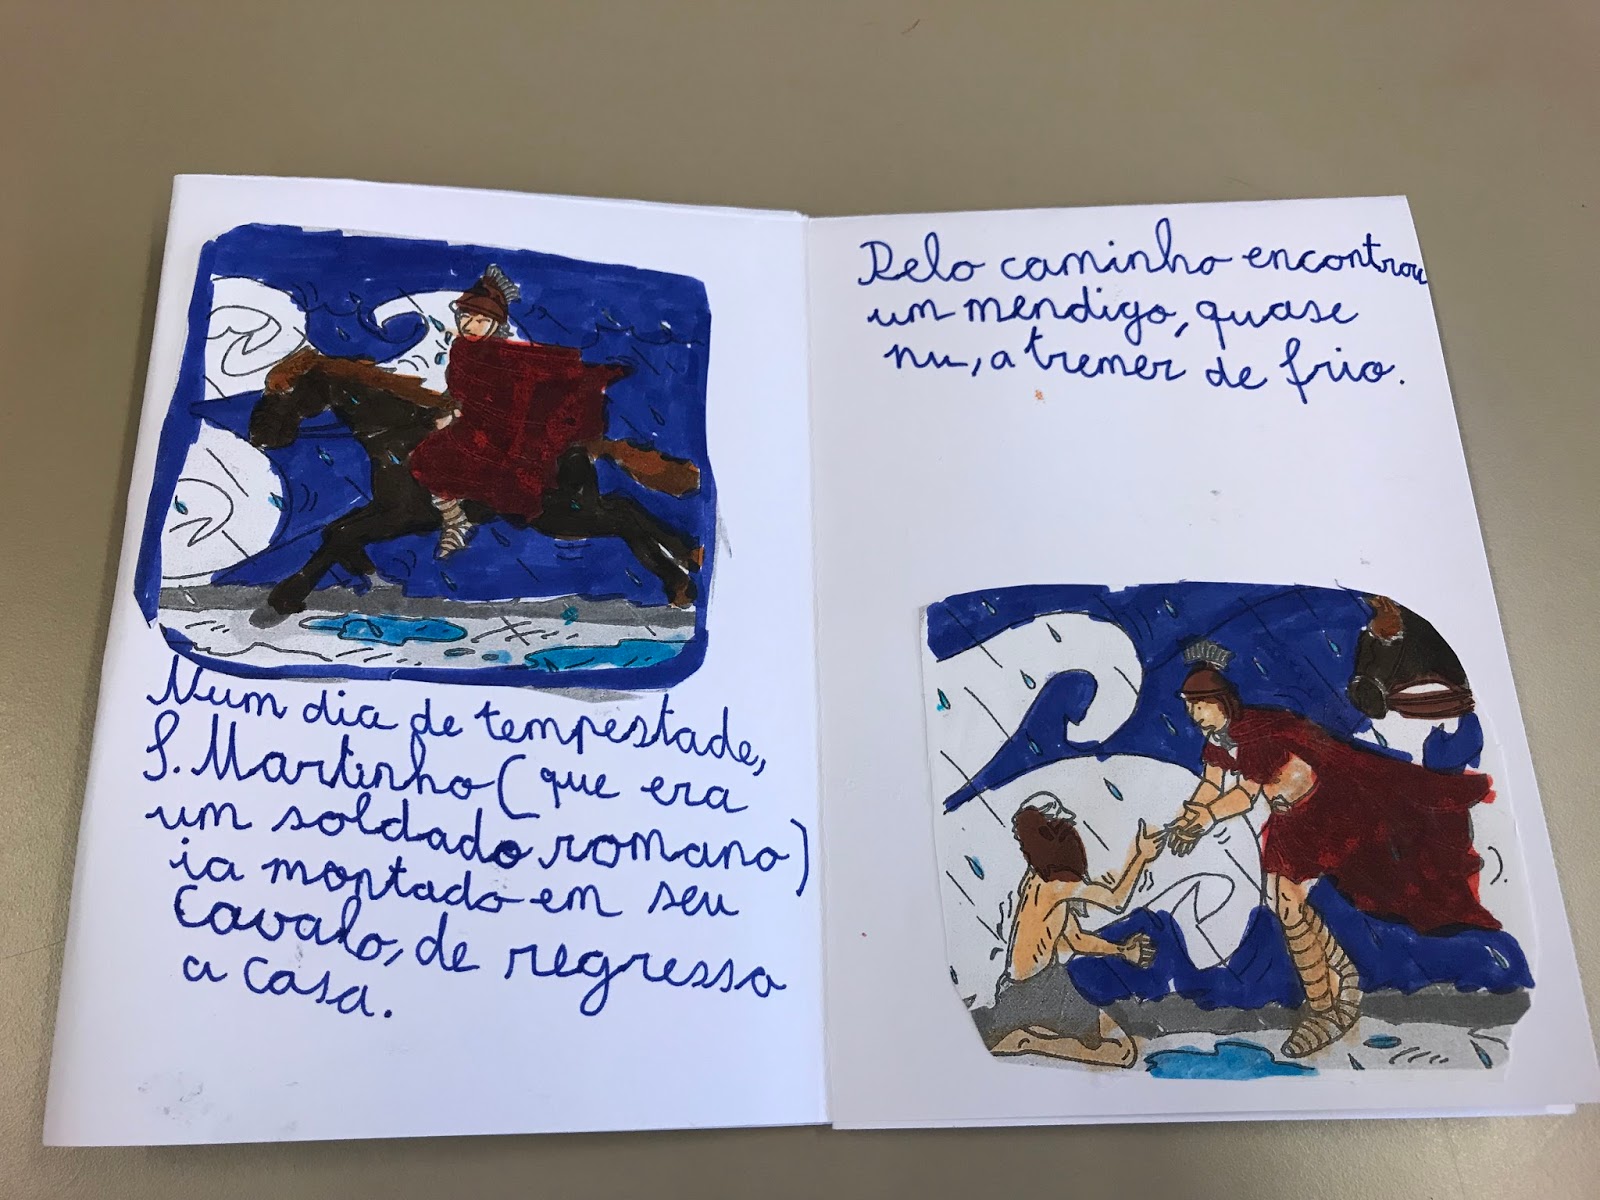 Num dia de tempestade,
S. Martinho (que era
um soldado romano)
ia montado em seu
cavalo, de regresso
a casa.
Pelo caminho encontrou
um mendigo, quase
nu, a tremer de frio.